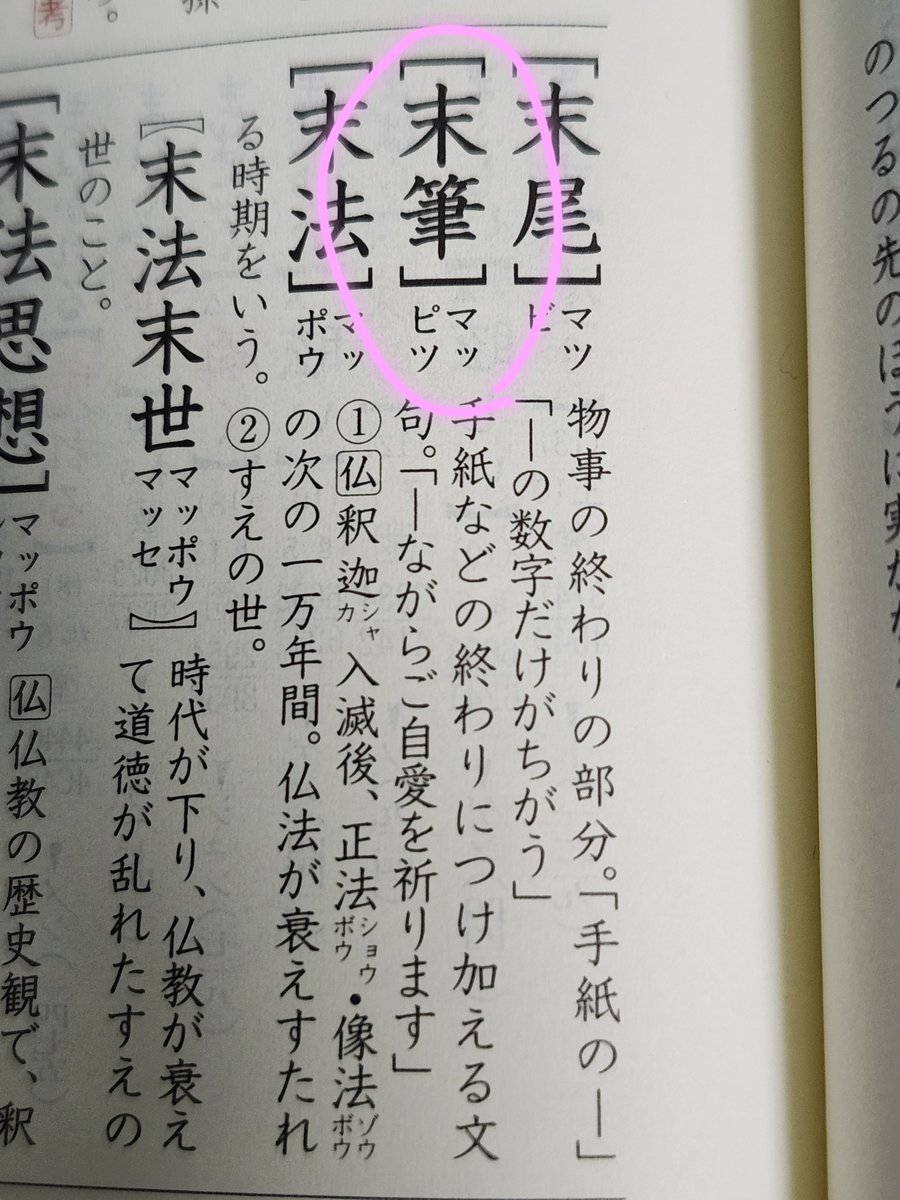 のつるの先のほうに実が
［末尾］マツビ
物事の終わりの部分。「手紙の―」
「―の数字だけがちがう」
［末筆］マッピツ
手紙などの終わりにつけ加える文
句。「―ながらご自愛を祈ります」
［末法］マッポウ
①仏釈迦シャカ入滅後、正法ショウボウ・像法ゾウボウ
の次の一万年間。仏法が衰えすたれ
る時期をいう。②すえの世。
〔末法末世マッポウマッセ〕
時代が下り、仏教が衰え
て道徳が乱れたすえの
世のこと。
［末法思想］マッポウ
仏仏教の歴史観で、釈
考
。